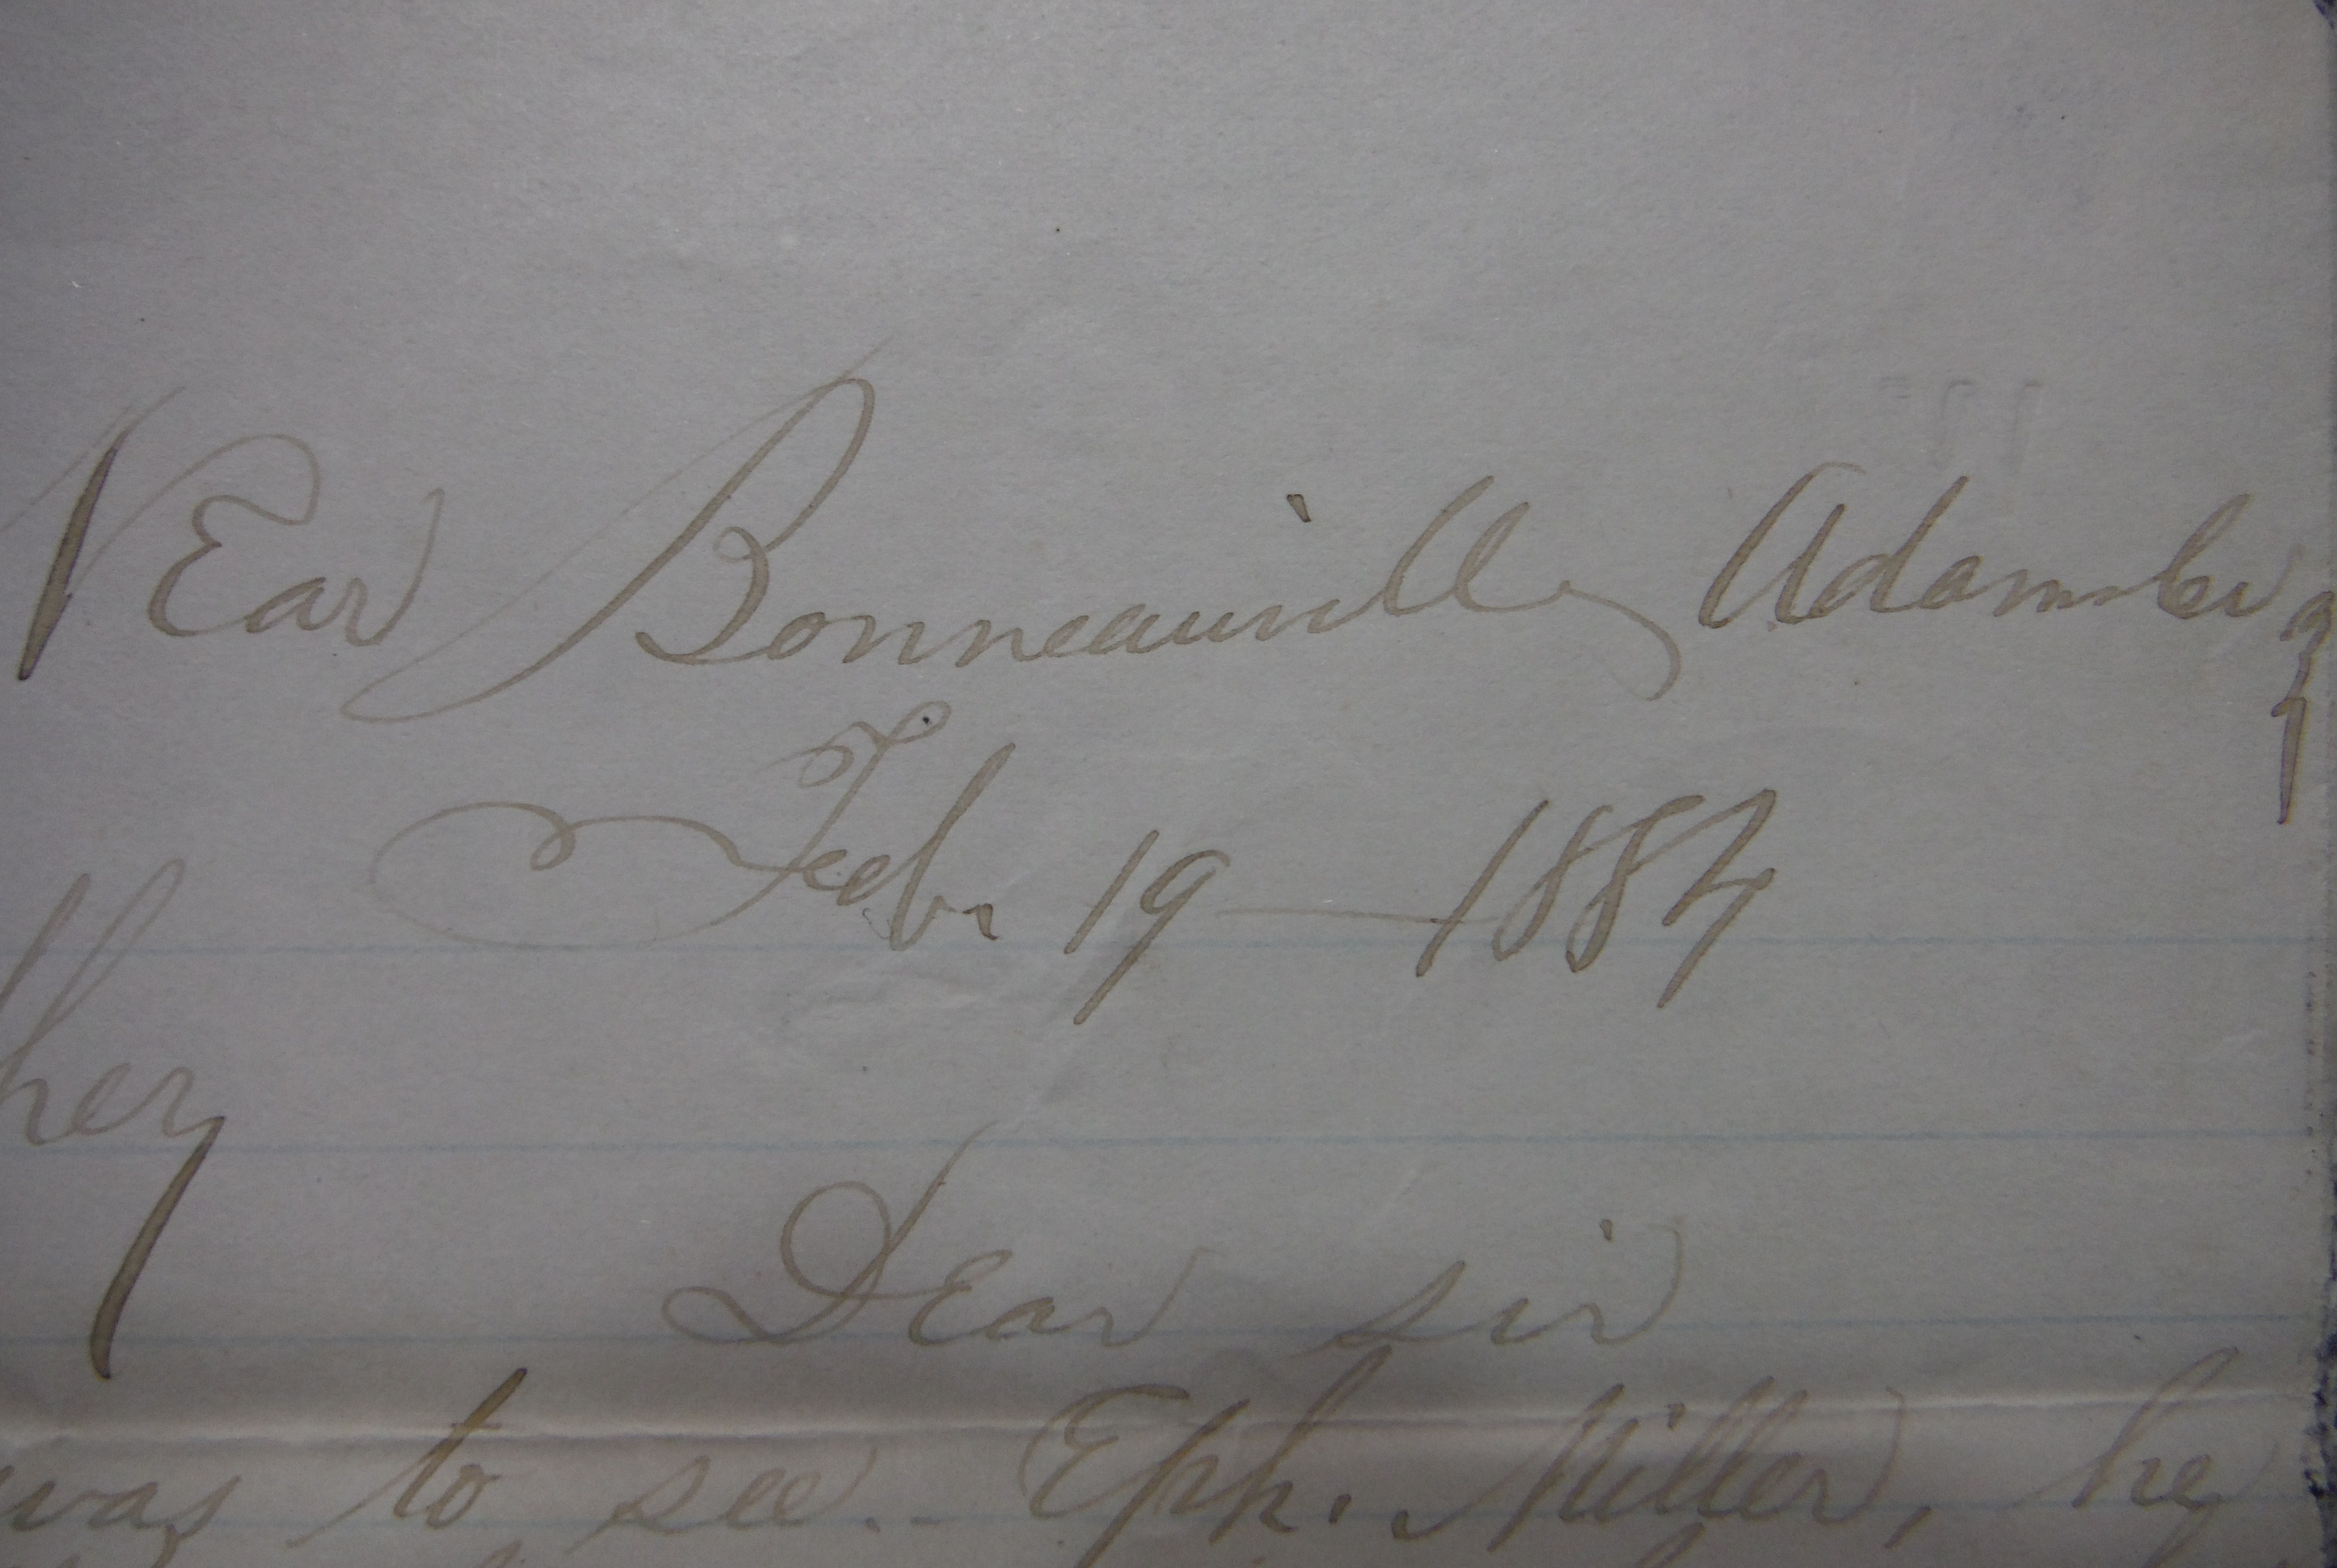 NEar Bonneauville, Adams Co
Feb. 19 — 1884
her
DEar sir
was to see. Eph. Miller, he